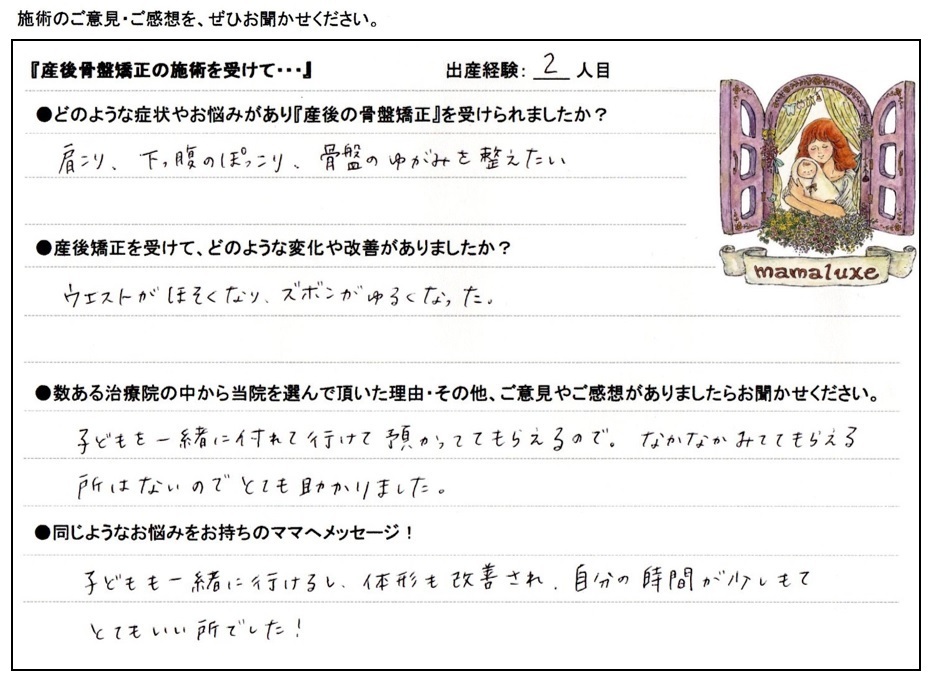 施術のご意見・ご感想を、ぜひお聞かせください。
『産後骨盤矯正の施術を受けて・・・』 出産経験: 2 人目
●どのような症状やお悩みがあり『産後の骨盤矯正』を受けられましたか？
肩こり、下っ腹のぽっこり、骨盤のゆがみを整えたい
●産後矯正を受けて、どのような変化や改善がありましたか？
mamaluxe
ウエストがほそくなり、ズボンがゆるくなった。
●数ある治療院の中から当院を選んで頂いた理由・その他、ご意見やご感想がありましたらお聞かせください。
子どもを一緒に付れて行けて預かっててもらえるので。なかなかみててもらえる
所はないのでとても助かりました。
●同じようなお悩みをお持ちのママへメッセージ！
子どもも一緒に行けるし、体形も改善され、自分の時間が少しもて
とてもいい所でした！